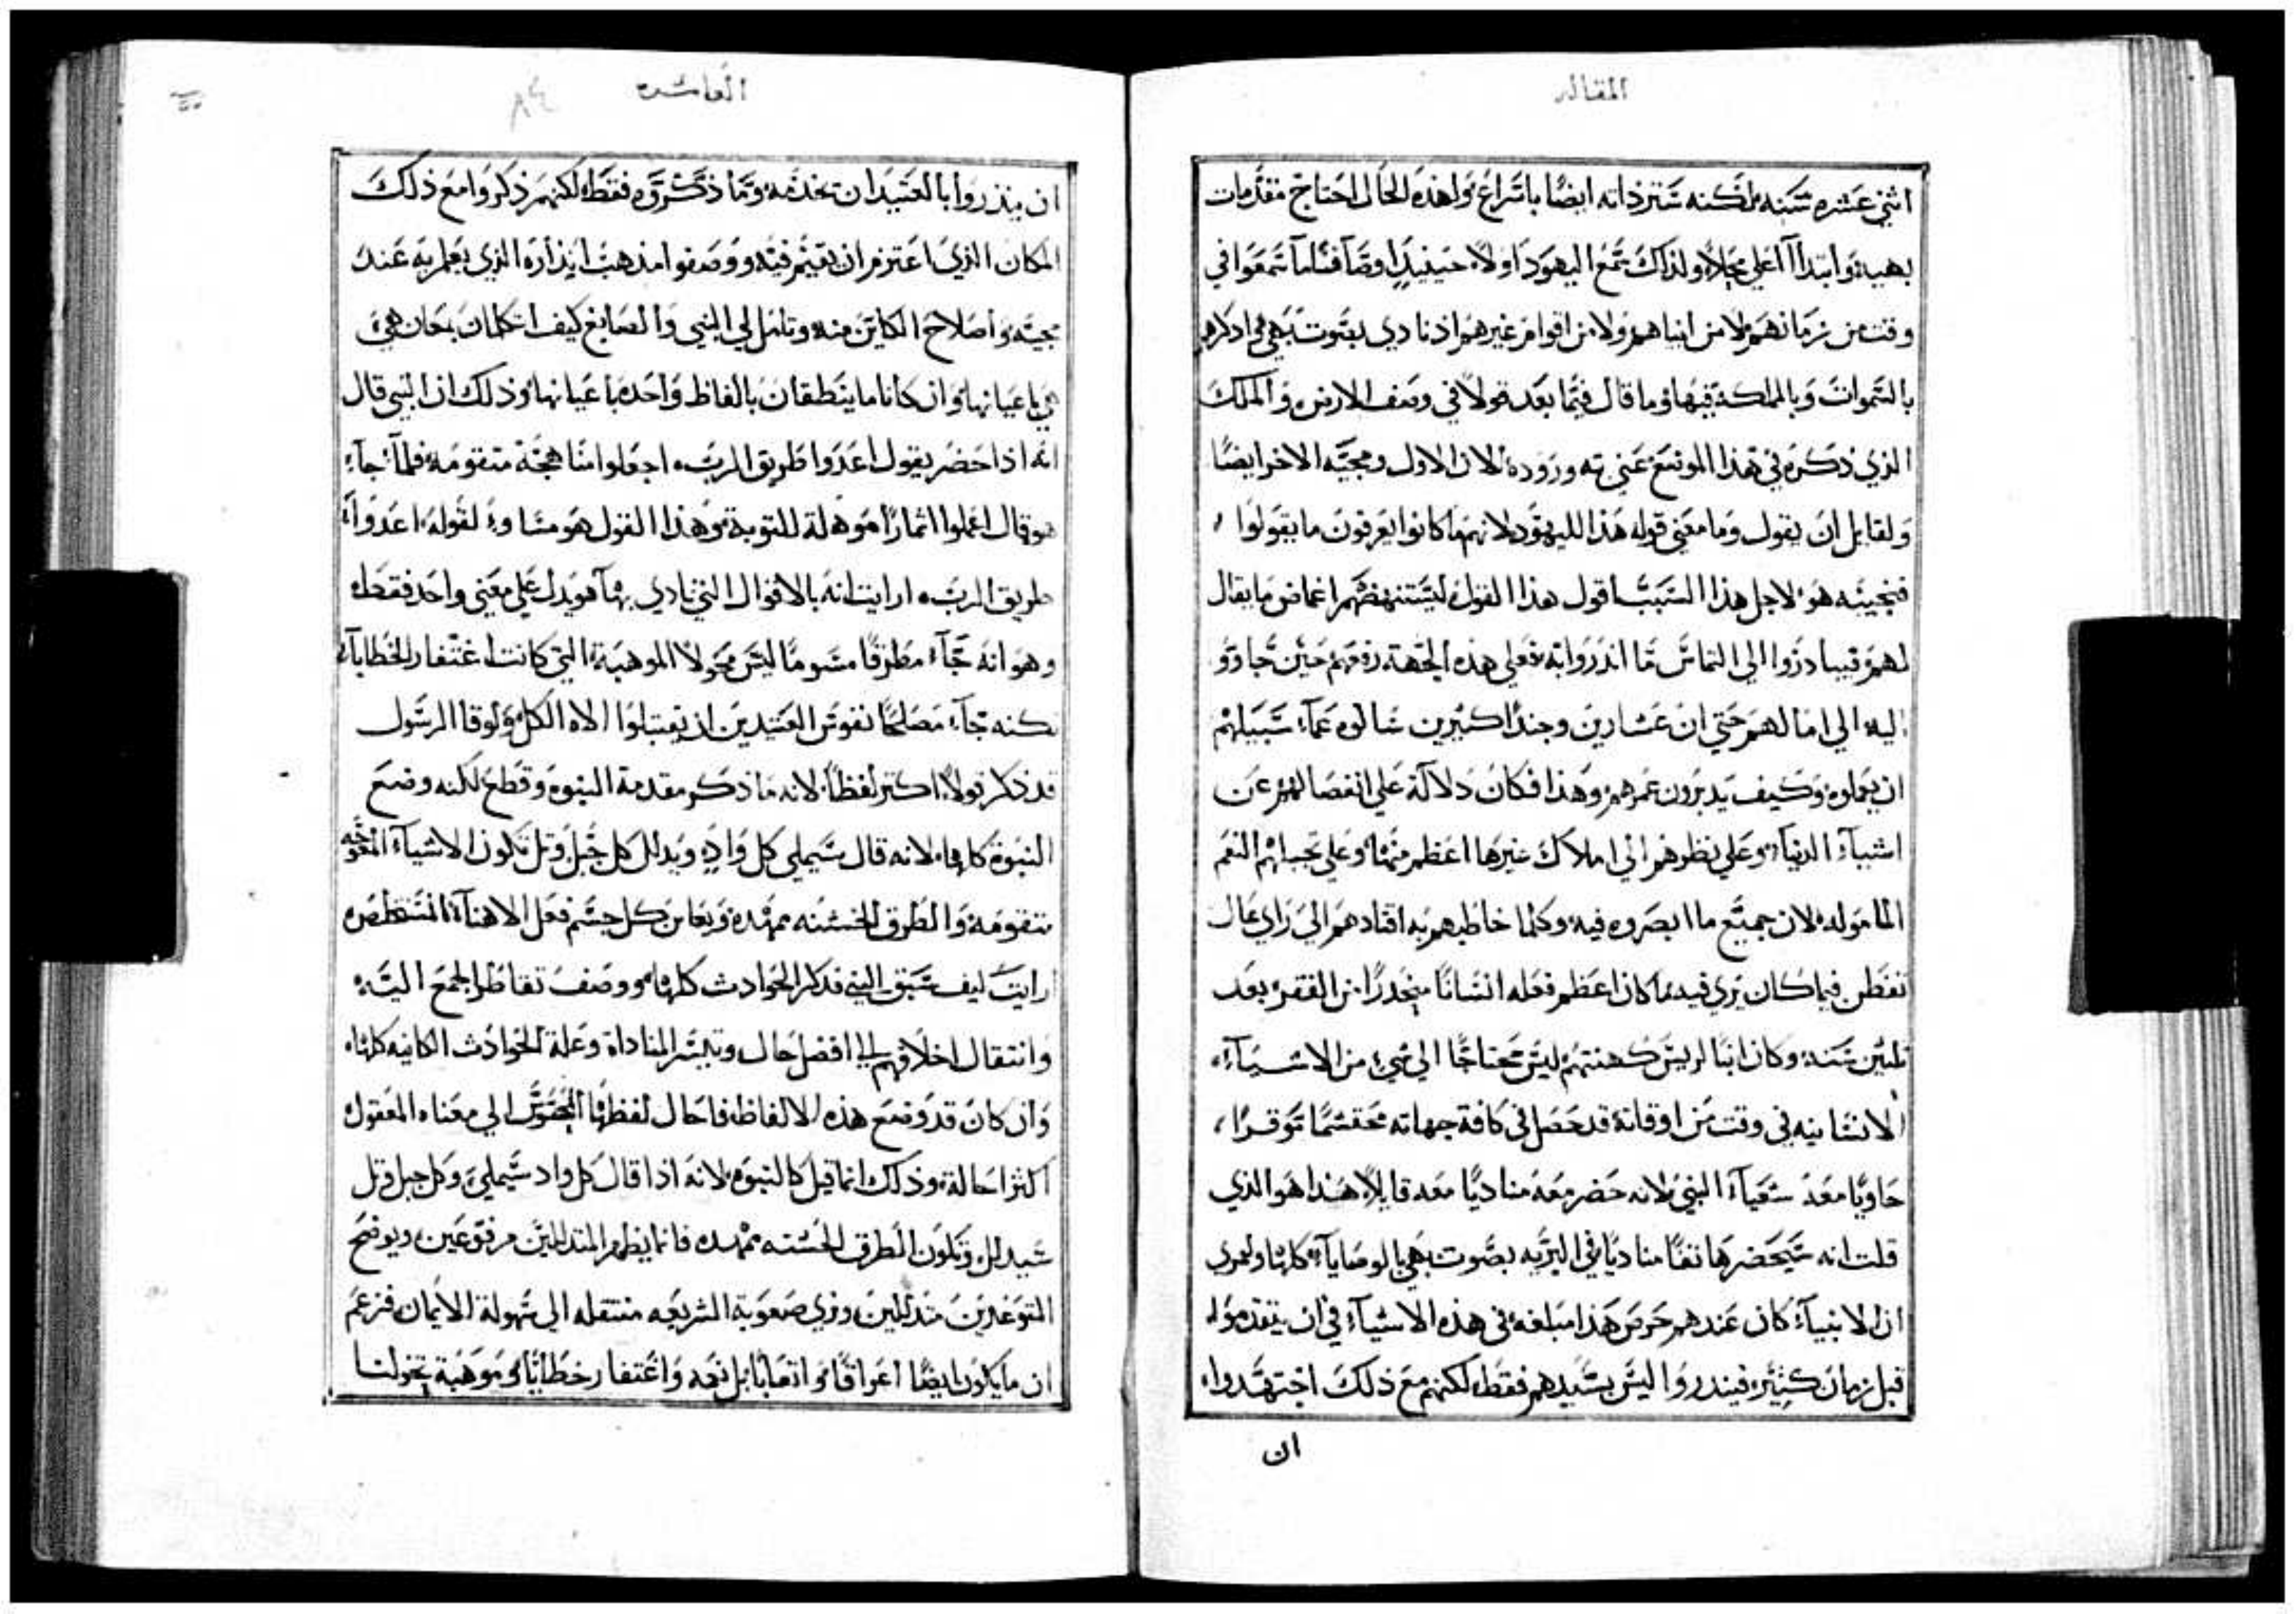 المقاله
اثني عشره سنه لكنه ستر ذاته ايضا باسراع ولهذه الحال احتاج مقدمات
بهيه وابتدا اعلي محلا ولذلك سمع اليهود اولا حينيذ اوصافا ما سمعوا في
وقت من زمانهم لا من انبياهم ولا من اقوام غيرهم اذ نادي بصوت بهي واذكرهم
بالسموات وبالمملكة فيها وما قال فيما بعد قولا في وصف الارض والملك
الذي ذكره في هذا الموضع عني به وروده الان الاول ومجيه الاخر ايضا
ولقايل ان يقول وما معني قوله هذا لليهود لانهم ما كانوا يعرفون ما يقولوا
فنجيبه هو لاجل هذا السبب اقول هذا القول ليستنهضهم اغماض ما يقال
لهم فيبادروا الي التماس ما انذروا به فعلي هذه الجهة رفعهم حين جاووا
اليه الي امالهم حتي ان عشارين وجندا كثيرين سالوه عما سبيلهم
ان يعملوه وكيف يدبرون عمرهم وهذا فكان دلالة علي انفصالهم عن
اشيآء الدنيا وعلي نظرهم الي املاك غيرها اعظم منها وعلي تخيلهم النعم
المامولة لان جميع ما ابصروه فيه وكلما خاطبهم به اقتادهم الي راي عال
تفطن فيما كان يري فيه ما كان اعظم فعله انسانا منحدرا من القفر بعد
ثلثين سنه وكان ابنا لريس كهنتهم ليس محتاجا الي شي من الاشيآء
الانسانيه في وقت من اوقاته قد حصل في كافة جهاته محتشما توقرا
حاويا معه شعيآء النبي لانه حضر معه مناديا معه قايلا هذا هو الذي
قلت انه سيحضر هاتفا مناديا في البريه بصوت بهي بالوصايا كلها ولعمري
ان الانبيآء كان عندهم حرص هذا مبلغه في هذه الاشيآء في ان يتقدموا
قبل زمان كثير فينذروا ليس بسيدهم فقط لكنهم مع ذلك اجتهدوا
ان
العاشره
٨٤
ان ينذروا بالعتيد ان يخدمه وما ذكروه فقط لكنهم ذكروا مع ذلك
المكان الذي اعتزم ان يقيم فيه ووصفوا مذهب انذاره الذي يعلم به عند
مجيه واصلاح الكاين منه وتامل لي النبي والصابغ كيف اتكلا معان هي
هي باعيانها وان كانا ما ينطقان بالفاظ واحده باعيانها وذلك ان النبي قال
انه اذا حضر يقول اعدوا طريق الرب اجعلوا مناهجه متقومة فلما جآء
هو قال اعملوا اثمارا موهلة للتوبة وهذا القول هو مساوي لقوله اعدوا
طريق الرب ارايت انه بالاقوال التي نادي بها هو يدل علي معني واحد فقط
وهو انه جآء مطرقا مشوما ليس مخولا الموهبة التي كانت اغتفار الخطايا
لكنه جآء مصلحا نفوس العتيدين ان يقتبلوا الاه الكل ولوقا الرسول
قد ذكر قولا اكثر لفظا لانه ما ذكر مقدمة النبوه وقطع لكنه وضع
النبوة كلها لانه قال سيملي كل واد ويذلل كل جبل وتل تكون الاشيآء المعوجه
متقومة والطرق الخشنه ممهده ويعاين كل جسم فعل الاهنا المستخلص
ارايت كيف سبق النبي فذكر الحوادث كلها ووصف تقاطر الجمع اليه
وانتقال اخلاقهم الي افضل حال وتيسر المناداة وعلة الحوادث الكاينه كلها
وان كان قد وضع هذه الالفاظ فاحال لفظها المحسوس الي معناه المعقول
اكثر احالة وذلك انما قيل كالنبوه لانه اذا قال كل واد سيملي وكل جبل وتل
سيذلل وتكون الطرق الخشنه ممهده فانما يظهر المتذللين مرفوعين ويوضح
المتوعرين متذللين ويري صعوبة الشريعه منتقله الي سهولة الايمان فزعم
ان ما يكون ايضا اعراقا واتعابا بل نعمه واغتفار خطايا وموهبة تخولنا